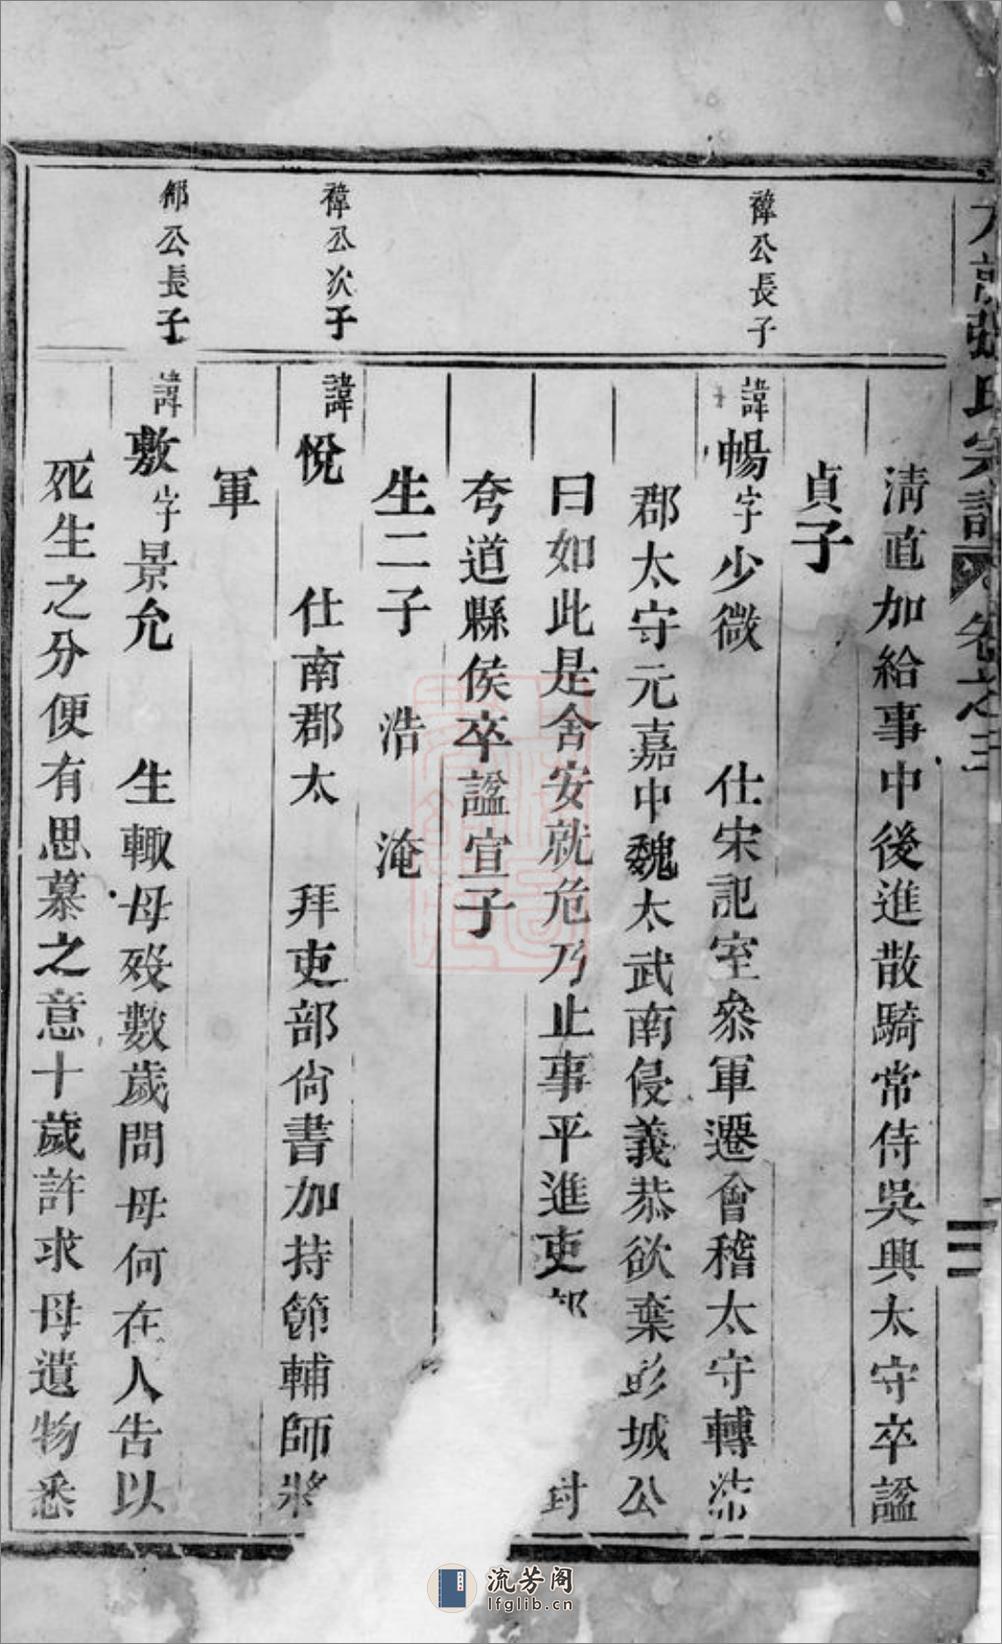 張氏宗譜 卷之三
三
清直加給事中後進散騎常侍吳興太守卒諡
貞子
褘公長子
諱暢字少微 仕宋記室叅軍遷會稽太守轉沛
郡太守元嘉中魏太武南侵義恭欲棄彭城公
曰如此是舍安就危乃止事平進吏部 封
夸道縣侯卒諡宣子
生二子 浩 淹
褘公次子
諱悅 仕南郡太 拜吏部尙書加持節輔師將
軍
邵公長子
諱敷字景允 生輙母歿數歲問母何在人告以
死生之分便有思慕之意十歲許求母遺物悉
流芳阁
lfglib.cn